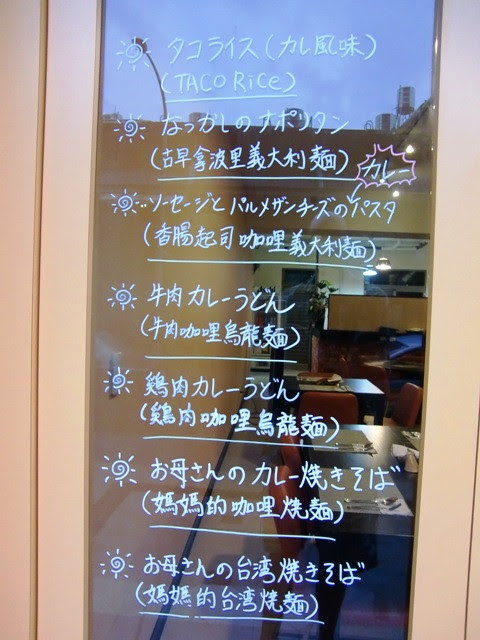 タコライス(カレ風味)
(TACO RiCe)
なつかしのナポリタン
(古早拿波里義大利麵)
カレー
ソーセージとパルメザンチーズのパスタ
(香腸起司咖哩義大利麵)
牛肉カレーうどん
(牛肉咖哩烏龍麵)
鶏肉カレーうどん
(鶏肉咖哩烏龍麵)
お母さんのカレー焼きそば
(媽媽的咖哩燒麵)
お母さんの台湾焼きそば
(媽媽的台湾燒麵)